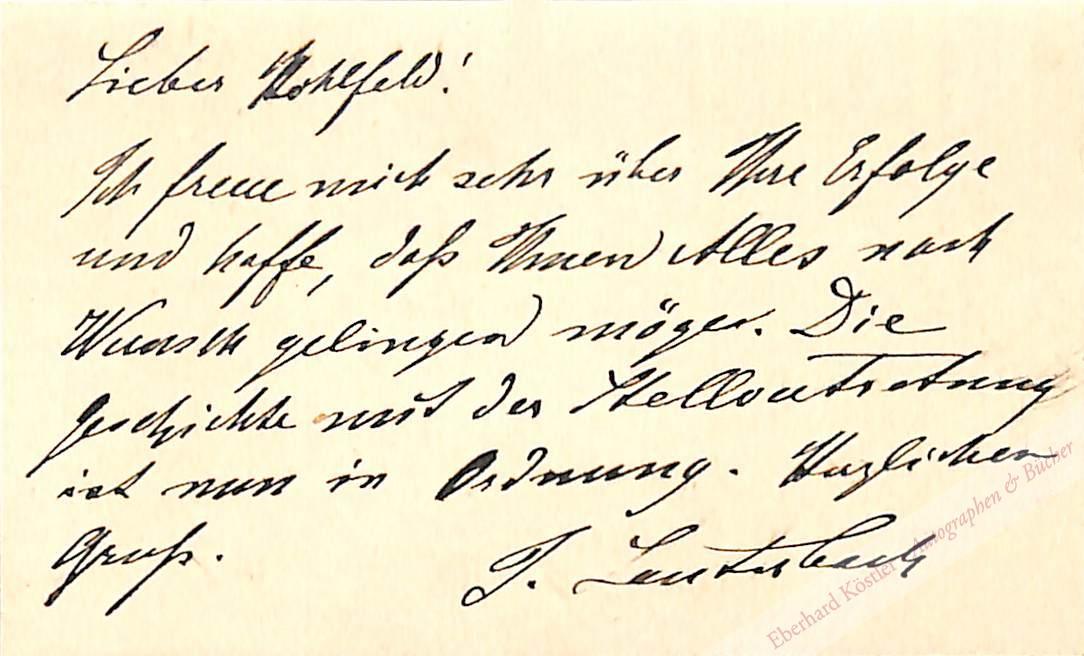 Lieber Kohlfeld!
Ich freue mich sehr über Ihre Erfolge
und hoffe, daß Ihnen Alles nach
Wunsch gelingen möge. Die
Geschichte mit der Stellvertretung
ist nun in Ordnung. Herzlichen
Gruß.
J. Lauterbach
Eberhard Köstler Autographen & Bücher